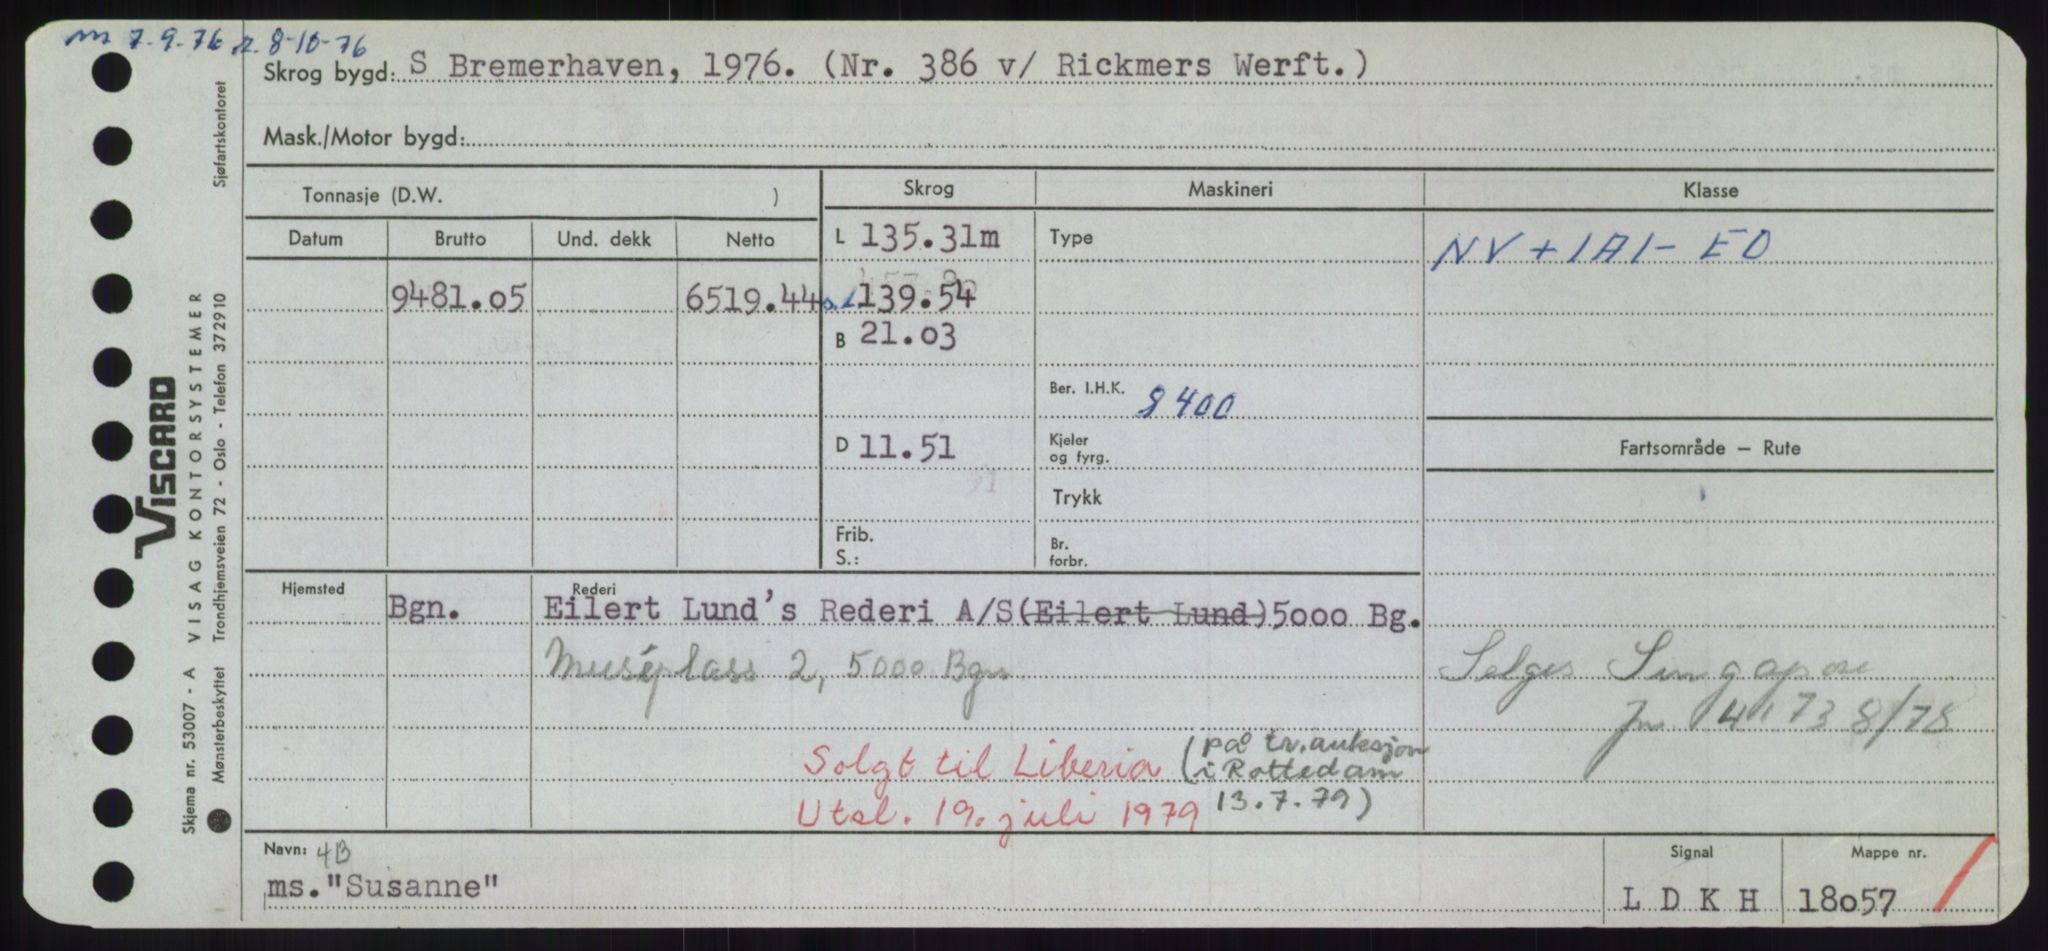 m 7.9.76 r. 8-10-76
Skrog bygd: S Bremerhaven, 1976. (Nr. 386 v/ Rickmers Werft.)
Mask./Motor bygd:
Tonnasje (D.W. )
Skrog
Maskineri
Klasse
Datum Brutto Und. dekk Netto
L 135.31m
Type
NV + 1A1 - EO
9481.05 6519.44
a.l 139.54
B 21.03
Ber. I.H.K. 8400
D 11.51
Kjeler
og fyrg.
Fartsområde — Rute
Trykk
Frib.
S.:
Br.
forbr.
Hjemsted
Bgn.
Rederi
Eilert Lund's Rederi A/S(Eilert Lund)5000 Bg.
Muséplass 2, 5000 Bgn.
Selges Singapore
Jnr 4173 8/78
Solgt til Liberia (på tv.auksjon
i Rottedam
13.7.79)
Utsl. 19. juli 1979
Navn: 4B
ms."Susanne"
Signal
L D K H
Mappe nr.
18057
Skjema nr. 53007 - A VISAG KONTORSYSTEMER
VISCARD
Mønsterbeskyttet Trondhjemsveien 72 - Oslo - Telefon 372910
Sjøfartskontoret